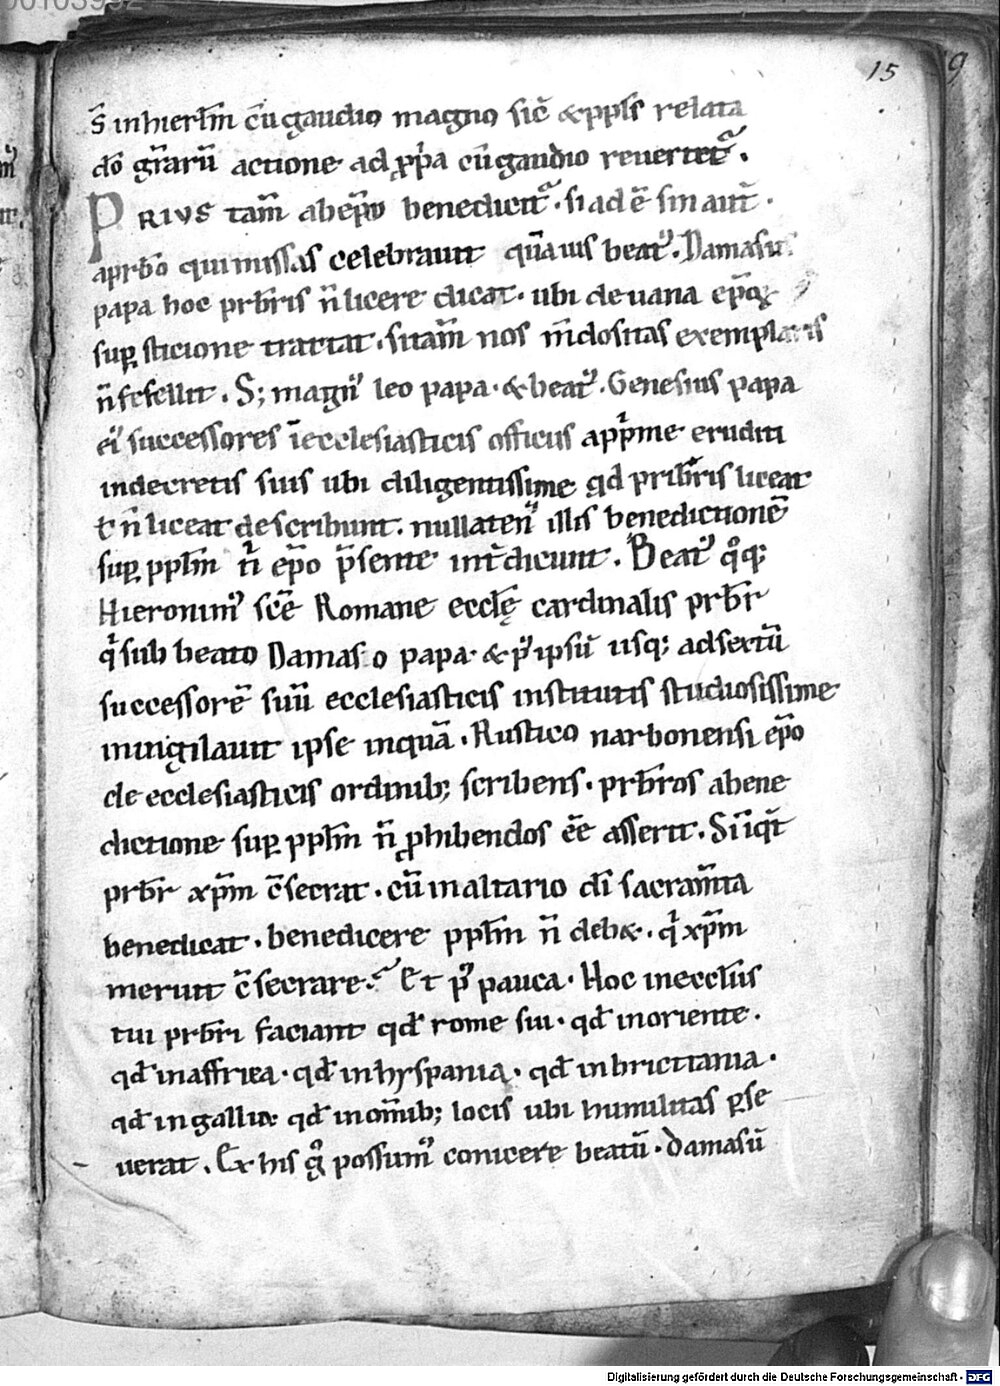 00103992
15
9
s̄ inhierłm cū gaudio magno sic̄ & ppłs relata
dō gr̄arū actione ad ꝓp̄a cū gaudio reuertet᷑.
PRIVS tam̄ ab ep̄o benedicit᷑. si adē sin aut̄.
a prb̄o qui missas celebrauit quāuis beatꝰ. Damasus
papa hoc prb̄ris n̄ licere dicat. ubi de uana ep̄oꝝ
suꝑsticione tractat. si tam̄ nos m̄dositas exemplaris
n̄ fefellit. S; magnꝰ leo papa. & beatꝰ. Genesius papa
eiꝰ successores ī ecclesiasticis officiis apprime eruditi
indecretis suis ubi diligentissime qd pribr̄is liceat
ł n̄ liceat describunt. nullatenꝰ illis benedictionē
suꝑ ppłm n̄ ep̄o p̄sente int̄dicunt. Beatꝰ qͦq;
Hieronimꝰ sc̄e Romane eccłę cardinalis prb̄r
qͥ sub beato Damaso papa. & pꝰ ipsū usq; ad sextū
successorē suū ecclesiasticis institutis studiosissime
inuigilauit ipse inquā. Rustico narbonensi ep̄o
de ecclesiasticis ordinib; scribens. prb̄ros abene
dictione suꝑ ppłm n̄ ꝓhibendos eē asserit. Si iq̄t
prb̄r xp̄m c̄secrat. cū in altario dī sacram̄ta
benedicat. benedicere ppłm n̄ deb&. qͥ xp̄m
meruit c̄secrare? Et pꝰ pauca. Hoc in eccłiis
tui prb̄ri faciant qd̄ rome siu. qd̄ in oriente.
qd̄ in affrica. qd̄ in hyspania. qd̄ in brictiania.
qd̄ in gallia qd̄ in om̄ib; locis ubi humilitas ꝑse
uerat. Ex his gͦ possumꝰ conicere beatū. Damasū
Digitalisierung gefördert durch die Deutsche Forschungsgemeinschaft - DFG